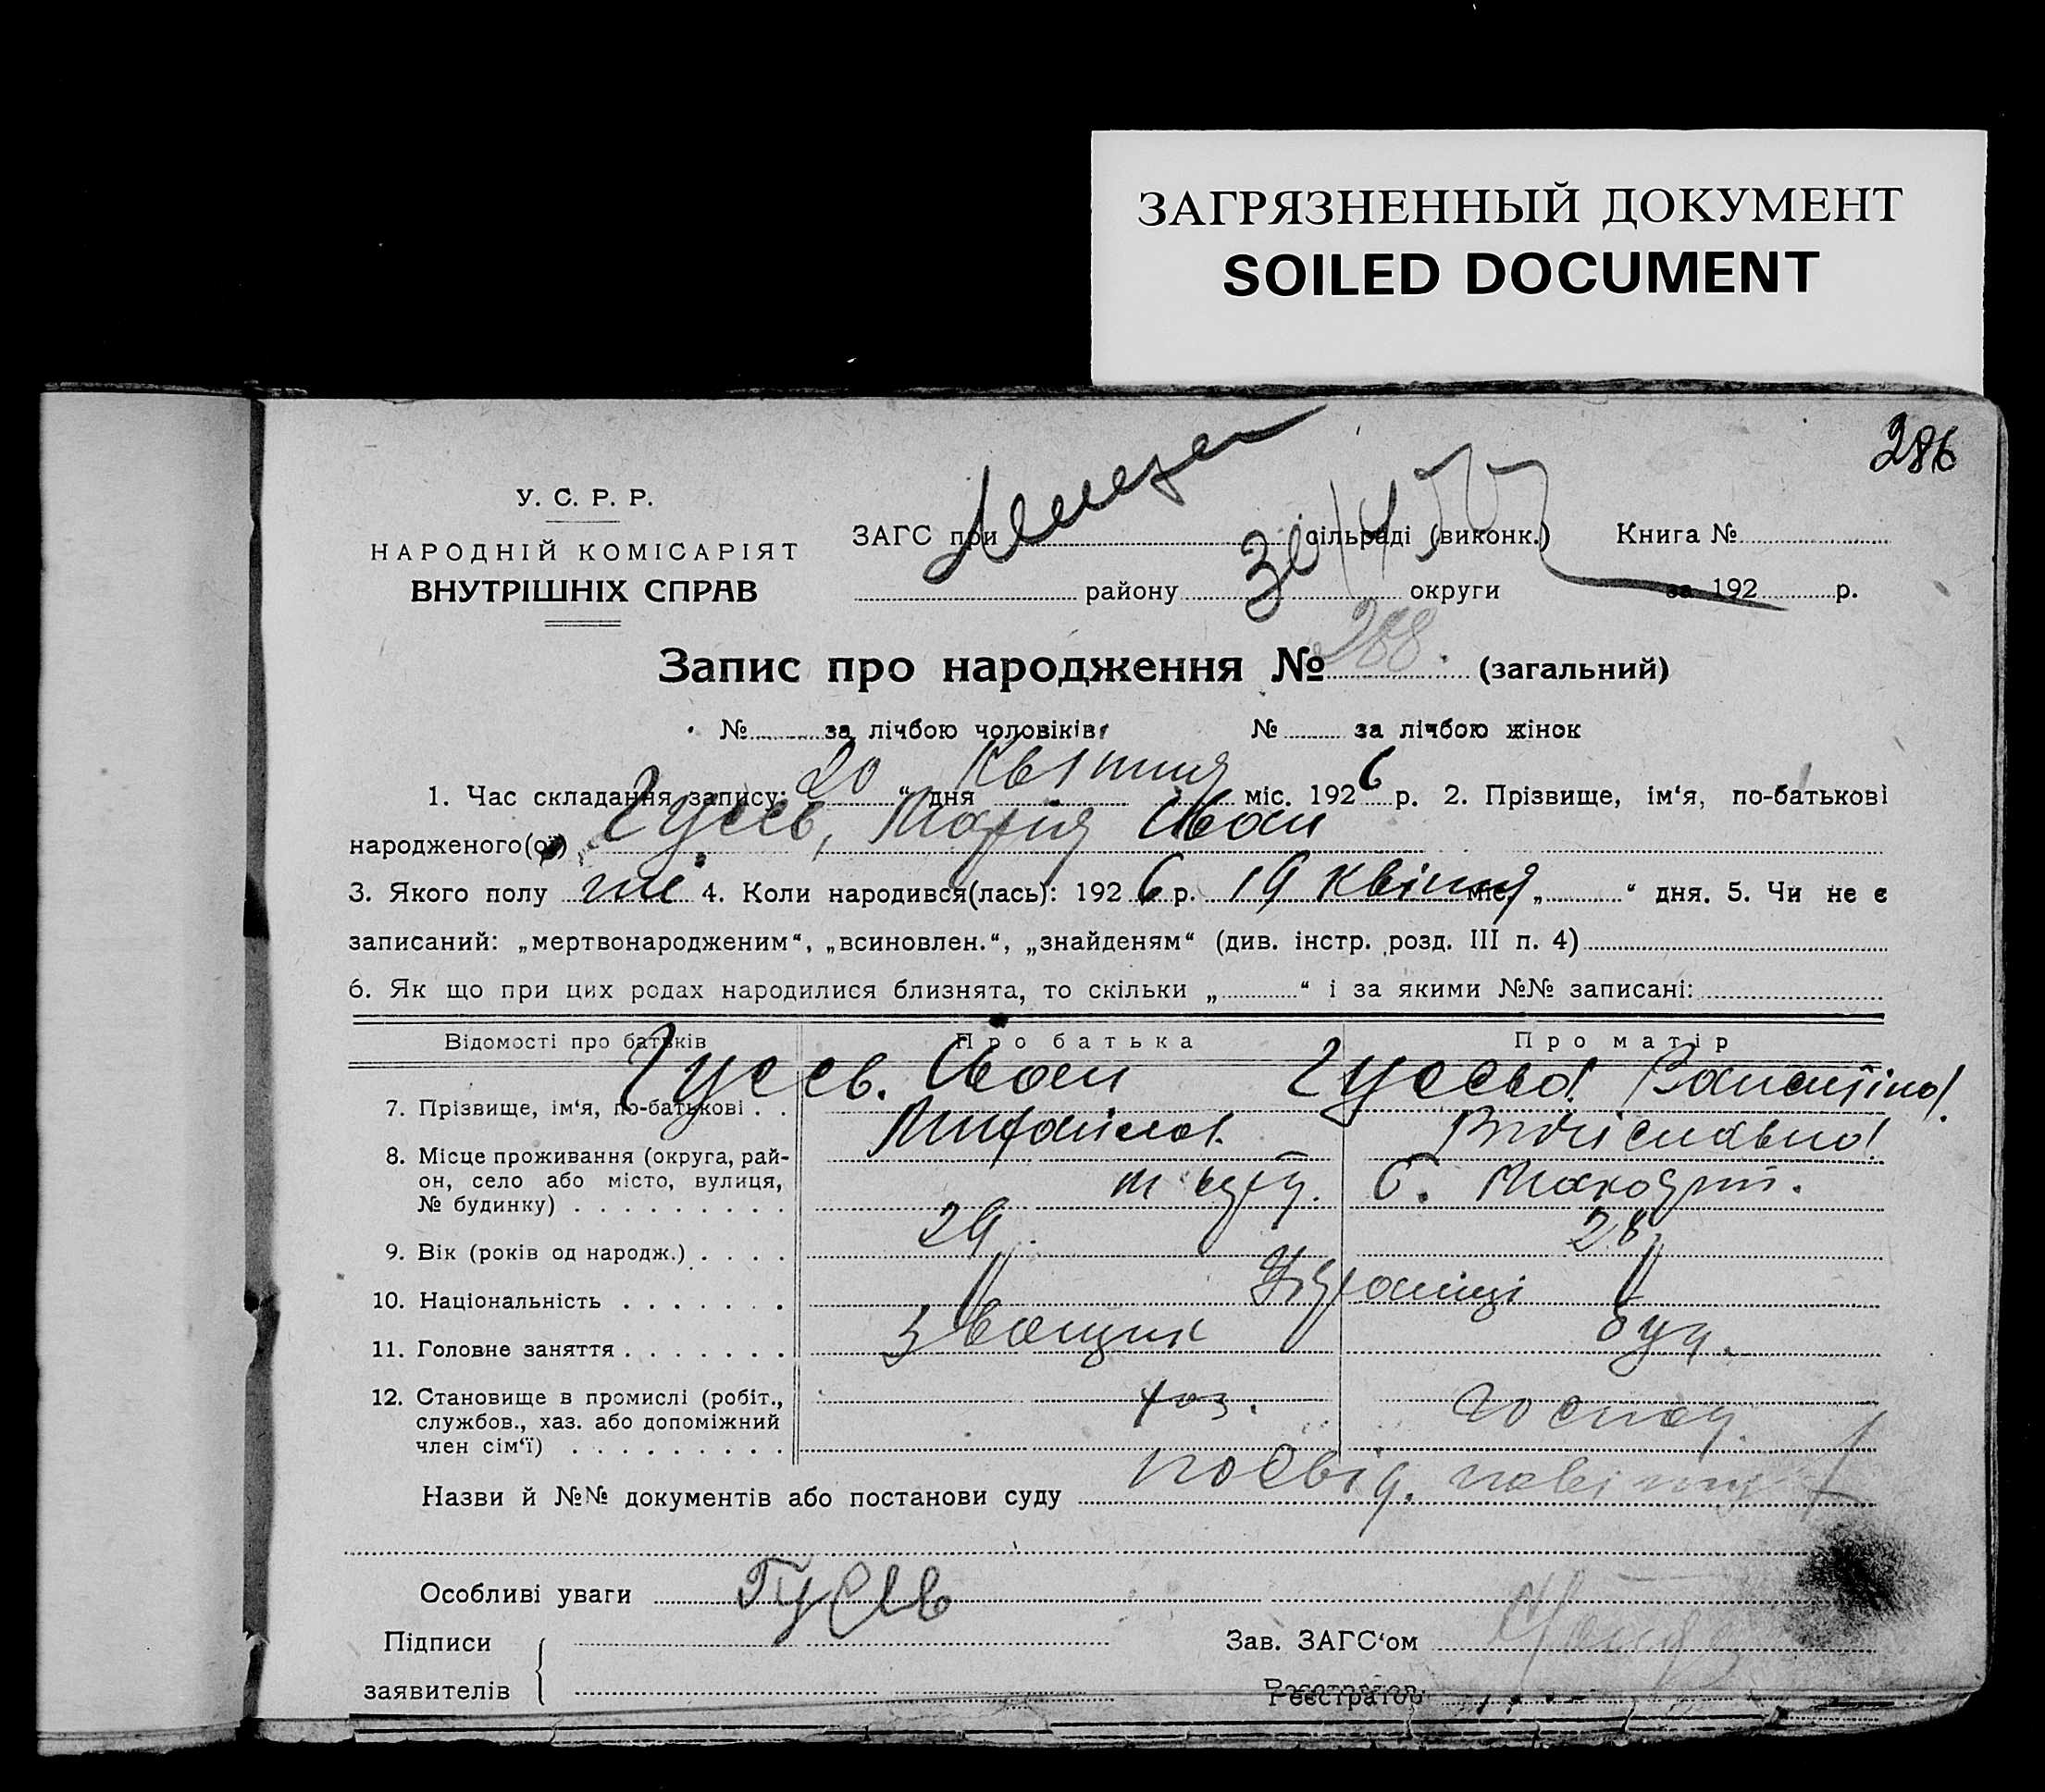 ЗАГРЯЗНЕННЫЙ ДОКУМЕНТ
SOILED DOCUMENT
286
У. С. Р. Р.
НАРОДНІЙ КОМІСАРІЯТ
ВНУТРІШНІХ СПРАВ
ЗАГС при сільраді (виконк.) Книга №
району округи за 192 р.
Запис про народження № 288. (загальний)
№ за лічбою чоловіків № за лічбою жінок
1. Час складання запису: 20 “ дня Квітня міс. 1926 р. 2. Прізвище, ім‘я, по-батькові
народженого(ої) Гусєв, Марія Иван
3. Якого полу жі 4. Коли народився(лась): 1926 р. 19 квітня міс. „ “ дня. 5. Чи не є
записаний: „мертвонародженим“, „всиновлен.“, „знайденям“ (див. інстр. розд. III п. 4)
6. Як що при цих родах народилися близнята, то скільки „ “ і за якими №№ записані:
Відомості про батьків Про батька Про матір
7. Прізвище, ім‘я, по-батькові . . Гусєв. Иван Гусева
8. Місце проживання (округа, рай-
он, село або місто, вулиця,
№ будинку)
9. Вік (років од народж.) . . . . 29 28
10. Національність
11. Головне заняття
12. Становище в промислі (робіт.,
службов., хаз. або допоміжний
член сім‘ї) хоз. господ.
Назви й №№ документів або постанови суду посвід.
Особливі уваги Гусєв
Підписи
заявителів
Зав. ЗАГС‘ом
Реєстратор